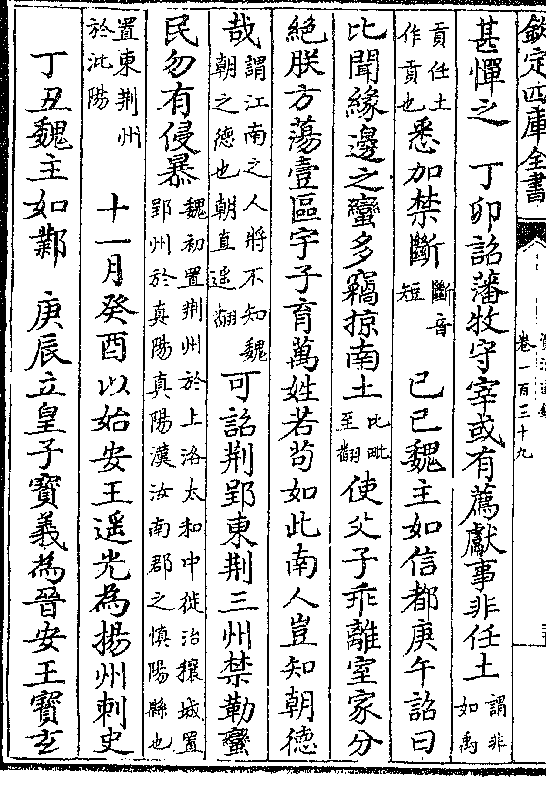 欽定四庫全書
卷一百三十九
甚憚之　丁卯詔藩牧守宰或有薦獻事非任土謂非如禹
貢任土作貢也悉加禁斷斷音短　己巳魏主如信都庚午詔曰
比聞緣邊之蠻多竊掠南土比毗至翻使父子乖離室家分
絶朕方蕩壹區宇子育萬姓若苟如此南人豈知朝德
哉謂江南之人將不知魏朝之德也朝直遥翻可詔荆郢東荆三州禁勒蠻
民勿有侵暴魏初置荆州於上洛太和中徙治穰城置郢州於真陽真陽漢汝南郡之慎陽縣也
置東荆州於沘陽　十一月癸酉以始安王遥光為揚州刺史
丁丑魏主如鄴　庚辰立皇子寶義為晉安王寶玄